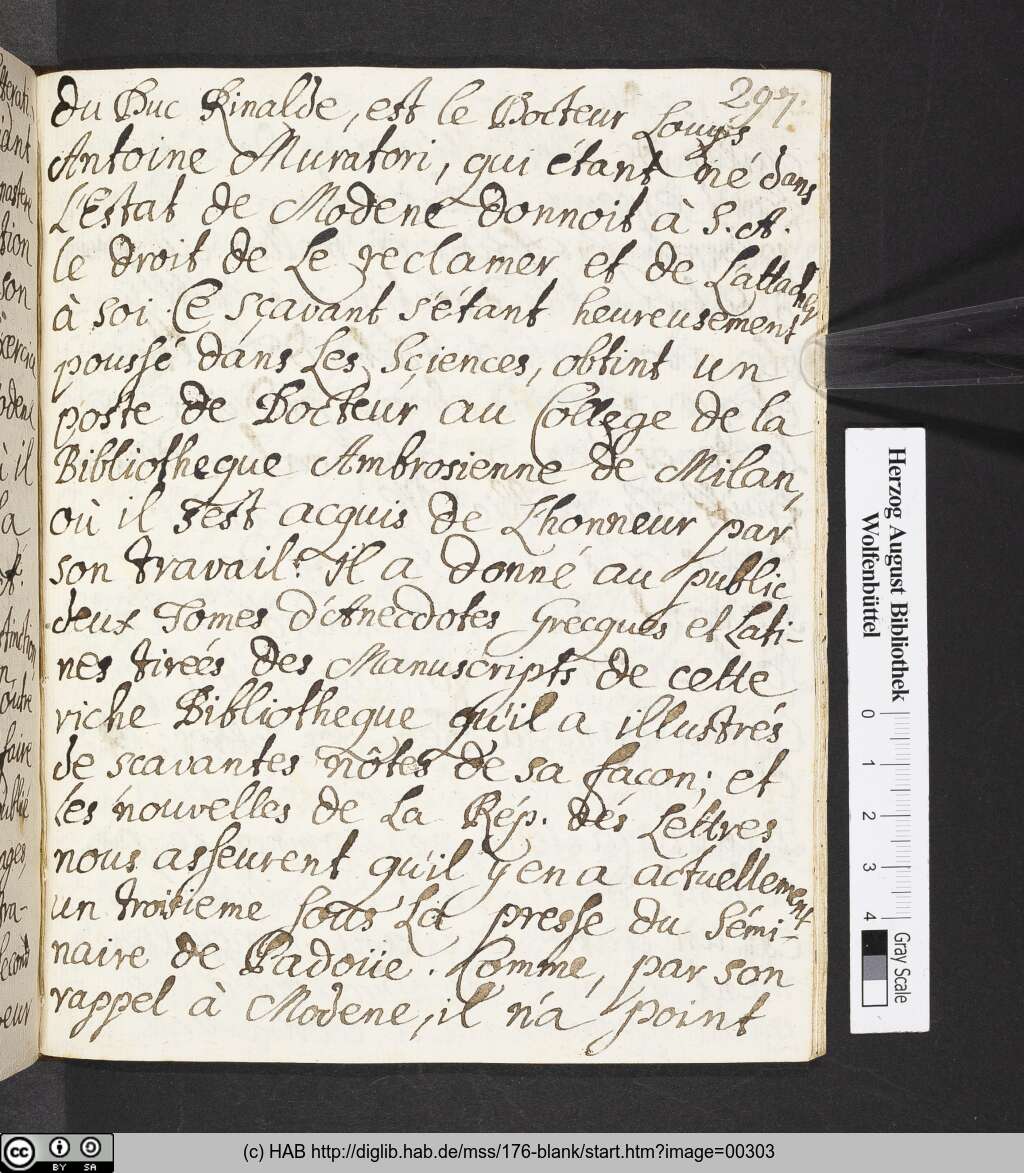 297.
du Duc Rinalde, est le Docteur Louÿs
Antoine Muratori, qui étant né dans
L'Estat de Modene donnoit à S. A.
le droit de Le reclamer et de L'attacher
à soi. Ce sçavant s'étant heureusement
poussé dans Les Sçiences, obtint un
poste de Docteur au College de la
Bibliotheque Ambrosienne de Milan,
où il s'est acquis de L'honneur par
son travail. Il a donné au public
deux Tomes d'Anecdotes Grecques et Lati-
nes tireés des Manuscripts de cette
riche Bibliotheque qu'il a illustrés
de scavantes nôtes de sa facon; et
les nouvelles de La Rép. dés Lettres
nous asseurent qu'il y en a actuellement
un troisieme sous La presse du Sémi-
naire de Padoüe. Comme, par son
rappel à Modene, il n'a point
Herzog August Bibliothek
Wolfenbüttel
0 1 2 3 4
Gray Scale
cc BY SA
(c) HAB http://diglib.hab.de/mss/176-blank/start.htm?image=00303